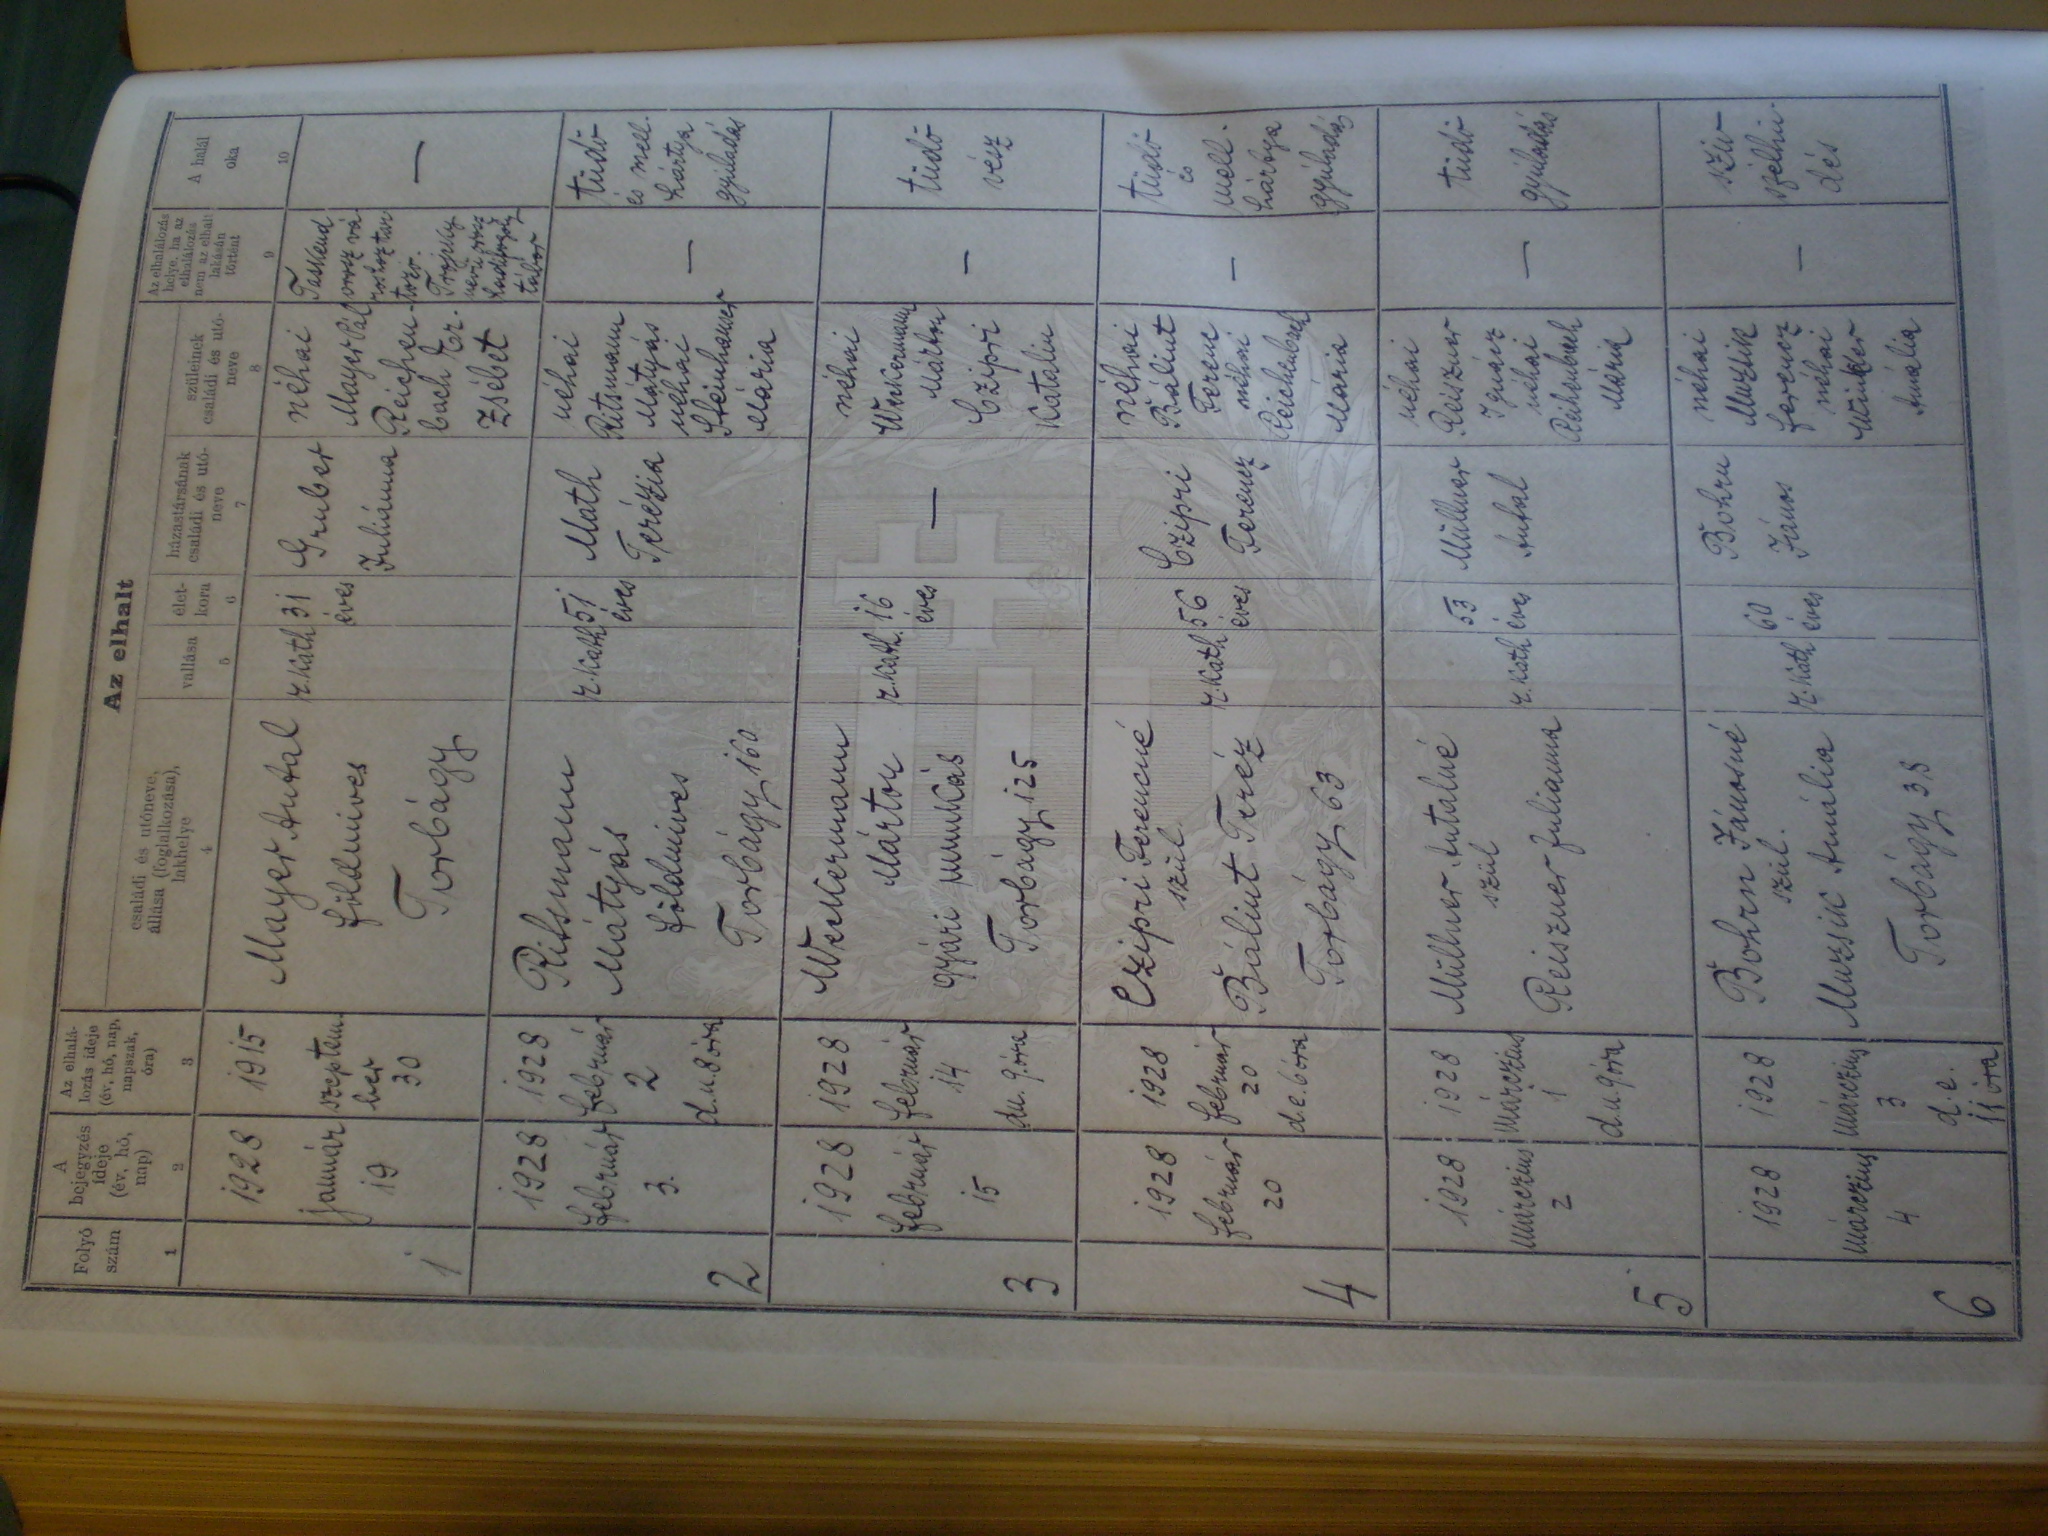 Az elhalt
Folyó
szám
A
bejegyzés
ideje
(év, hó,
nap)
Az elhalá-
lozás ideje
(év, hó, nap,
napszak,
óra)
családi és utóneve,
állása (foglalkozása),
lakhelye
vallása
élet-
kora
házastársának
családi és utó-
neve
szüleinek
családi és utó-
neve
Az elhalálozás
helye, ha az
elhalálozás
nem az elhalt
lakásán
történt
A halál
oka
1
2
3
4
5
6
7
8
9
10
1
1928
január
19
1915
szeptem-
ber
30
Mayer Antal
földmives
Torbágy
r. kath
31
éves
Gruber
Juliánna
néhai
Mayer Pál
Reichen-
bach Er-
zsébet
Taskend
orosz vá-
hadifogoly
tábor
—
2
1928
február
3.
1928
február
2
d.u. 8 óra
Ritsmann
Mátyás
földmives
Torbágy 160
r. kath
51
éves
Math
Terézia
néhai
Ritsmann
Mátyás
néhai
Steinhauser
Mária
—
tüdő
és mell-
hártya
gyuladás
3
1928
február
15
1928
február
14
du. 9 óra
Wekermann
Márton
gyári munkás
Torbágy 125
r. kath.
16
éves
—
néhai
Wekermann
Márton
Czipri
Katalin
—
tüdő
vész
4
1928
február
20
1928
február
20
d.e. 6 óra
Czipri Ferencné
szül.
Bálint Teréz
Torbágy 63
r. kath
56
éves
Czipri
Ferencz
néhai
Bálint
Ferenc
néhai
Reichenbach
Mária
—
tüdő
és
mell-
hártya
gyuladás
5
1928
márczius
2
1928
márczius
1
d.u. 9 óra
Müllner Antalné
szül
Reiszner Julianna
r. kath
53
éves
Müllner
Antal
néhai
Reiszner
Ignácz
néhai
Reihenbach
Mária
—
tüdő
gyuladás
6
1928
márczius
4
1928
márczius
3
d.e.
11 óra
Bohrn Jánosné
szül.
Muzsik Amália
Torbágy 38
r. kath
60
éves
Bohrn
János
néhai
Muzsik
ferencz
néhai
Winkler
Amália
—
sziv
szélhü-
dés